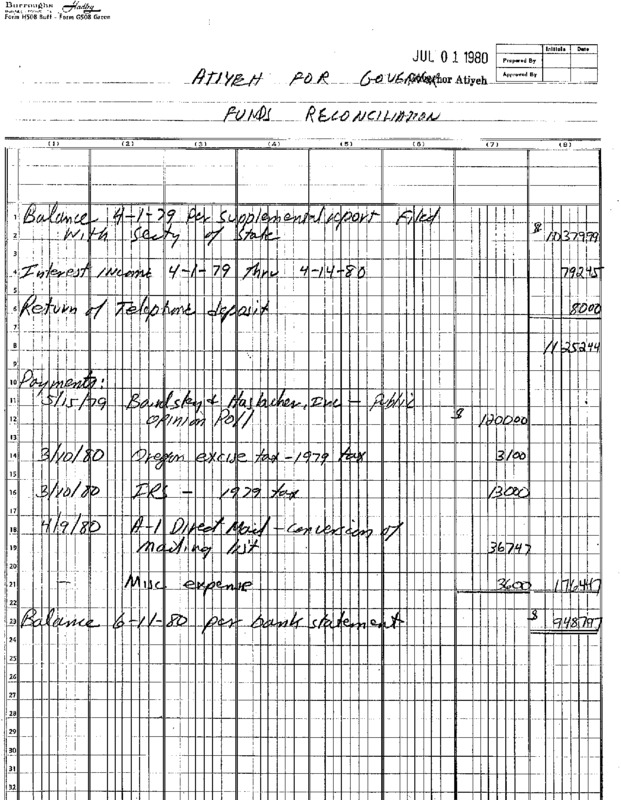 Burroughs Hadley
Form H508 Buff - Form G508 Green
JUL 01 1980
Initials Date
Prepared By
Approved By
ATIYEH FOR GOVERNOR
FUNDS RECONCILIATION
(1) (2) (3) (4) (5) (6) (7) (8)
1 Balance 4-1-79 per supplemental report Filed
2 with Secty of State $ 1037999
3
4 Interest income 4-1-79 thru 4-14-80 79245
5
6 Return of Telephone deposit 8000
7
8 1125244
9
10 Payments:
11 5/15/79 Bardsley & Haslacher, Inc - Public
12 opinion Poll $ 120000
13
14 3/10/80 Oregon excise tax - 1979 tax 3100
15
16 3/10/80 IRS - 1979 tax 13000
17
18 4/9/80 A-1 Direct Mail - conversion of
19 mailing list 36747
20
21 — Misc expense 3600 176447
22
23 Balance 6-11-80 per bank statement $ 948797
24
25
26
27
28
29
30
31
32